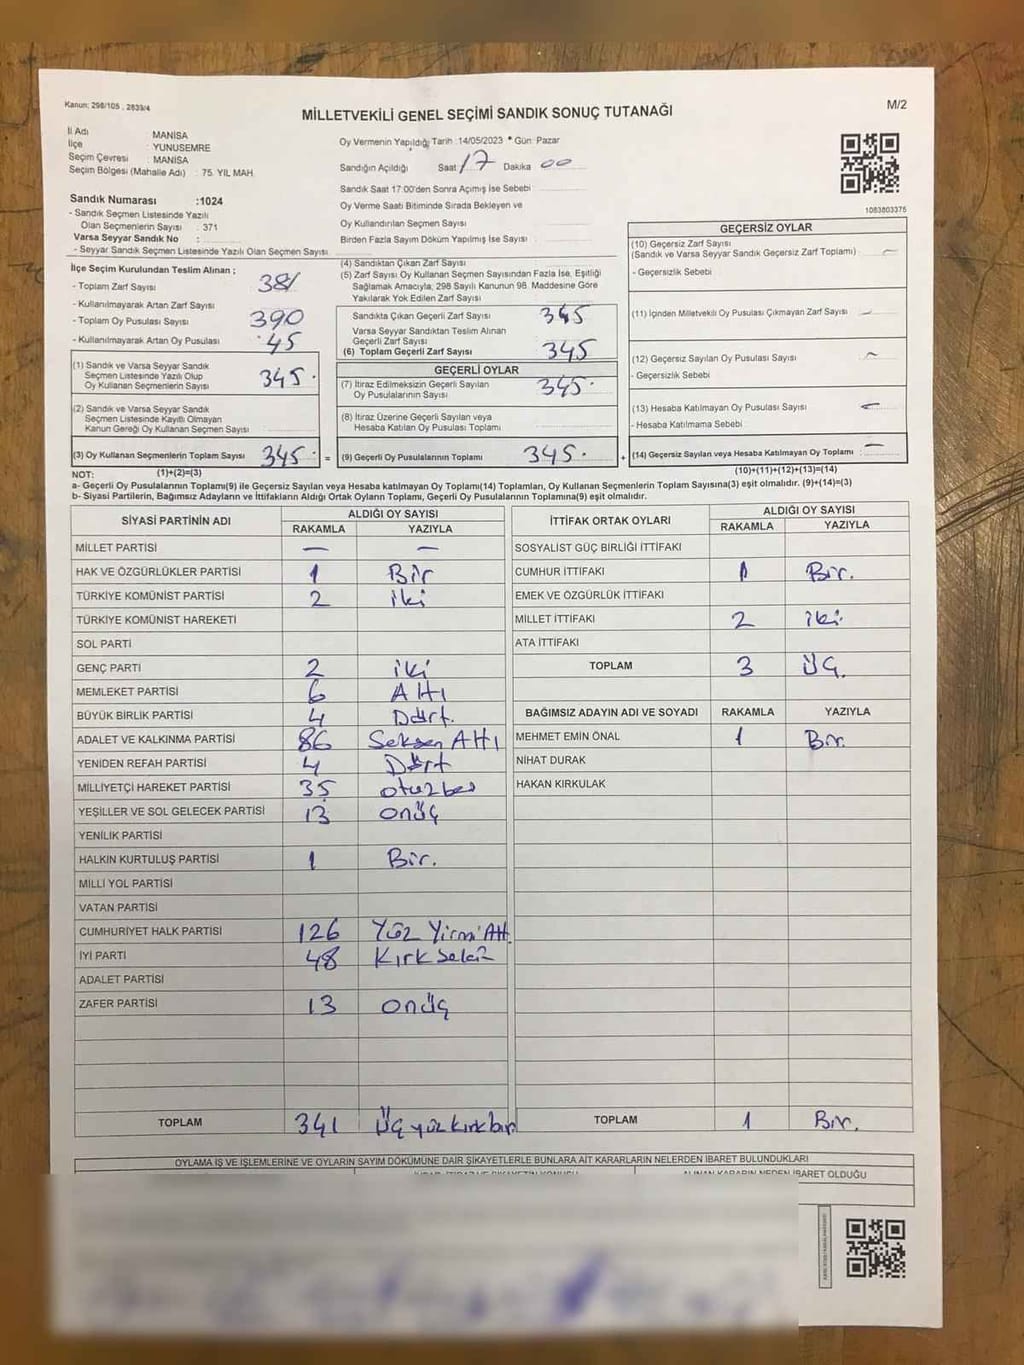 Kanun: 298/105 , 2839/4
M/2
MİLLETVEKİLİ GENEL SEÇİMİ SANDIK SONUÇ TUTANAĞI
İl Adı MANİSA
İlçe : YUNUSEMRE
Seçim Çevresi : MANİSA
Seçim Bölgesi (Mahalle Adı) : 75. YIL MAH.
Oy Vermenin Yapıldığı Tarih :14/05/2023 * Gün: Pazar
Sandığın Açıldığı Saat 17 Dakika 00
Sandık Saat 17:00'den Sonra Açımış İse Sebebi
Oy Verme Saati Bitiminde Sırada Bekleyen ve
Oy Kullandırılan Seçmen Sayısı
Birden Fazla Sayım Döküm Yapılmış İse Sayısı
1083803375
Sandık Numarası :1024
- Sandık Seçmen Listesinde Yazılı
Olan Seçmenlerin Sayısı : 371
Varsa Seyyar Sandık No :
- Seyyar Sandık Seçmen Listesinde Yazılı Olan Seçmen Sayısı
İlçe Seçim Kurulundan Teslim Alınan ;
- Toplam Zarf Sayısı 381
- Kullanılmayarak Artan Zarf Sayısı
- Toplam Oy Pusulası Sayısı 390
- Kullanılmayarak Artan Oy Pusulası 45
(1) Sandık ve Varsa Seyyar Sandık
Seçmen Listesinde Yazılı Olup
Oy Kullanan Seçmenlerin Sayısı 345
(2) Sandık ve Varsa Seyyar Sandık
Seçmen Listesinde Kayıtlı Olmayan
Kanun Gereği Oy Kullanan Seçmen Sayısı
(3) Oy Kullanan Seçmenlerin Toplam Sayısı 345 =
(4) Sandıktan Çıkan Zarf Sayısı
(5) Zarf Sayısı Oy Kullanan Seçmen Sayısından Fazla İse, Eşitliği
Sağlamak Amacıyla; 298 Sayılı Kanunun 98. Maddesine Göre
Yakılarak Yok Edilen Zarf Sayısı
Sandıkta Çıkan Geçerli Zarf Sayısı 345
Varsa Seyyar Sandıktan Teslim Alınan
Geçerli Zarf Sayısı
(6) Toplam Geçerli Zarf Sayısı 345
GEÇERLİ OYLAR
(7) İtiraz Edilmeksizin Geçerli Sayılan
Oy Pusulalarının Sayısı 345
(8) İtiraz Üzerine Geçerli Sayılan veya
Hesaba Katılan Oy Pusulası Toplamı
(9) Geçerli Oy Pusulalarının Toplamı 345 +
GEÇERSİZ OYLAR
(10) Geçersiz Zarf Sayısı
(Sandık ve Varsa Seyyar Sandık Geçersiz Zarf Toplamı) -
- Geçersizlik Sebebi
(11) İçinden Milletvekili Oy Pusulası Çıkmayan Zarf Sayısı -
(12) Geçersiz Sayılan Oy Pusulası Sayısı -
- Geçersizlik Sebebi
(13) Hesaba Katılmayan Oy Pusulası Sayısı -
- Hesaba Katılmama Sebebi
(14) Geçersiz Sayılan veya Hesaba Katılmayan Oy Toplamı -
NOT: (1)+(2)=(3) (10)+(11)+(12)+(13)=(14)
a- Geçerli Oy Pusulalarının Toplamı(9) ile Geçersiz Sayılan veya Hesaba Katılmayan Oy Toplamı(14) Toplamları, Oy Kullanan Seçmenlerin Toplam Sayısına(3) eşit olmalıdır. (9)+(14)=(3)
b- Siyasi Partilerin, Bağımsız Adayların ve İttifakların Aldığı Ortak Oyların Toplamı, Geçerli Oy Pusulalarının Toplamına(9) eşit olmalıdır.
SİYASİ PARTİNİN ADI ALDIĞI OY SAYISI
RAKAMLA YAZIYLA
MİLLET PARTİSİ - -
HAK VE ÖZGÜRLÜKLER PARTİSİ 1 Bir
TÜRKİYE KOMÜNİST PARTİSİ 2 iki
TÜRKİYE KOMÜNİST HAREKETİ
SOL PARTİ
GENÇ PARTİ 2 iki
MEMLEKET PARTİSİ 6 Altı
BÜYÜK BİRLİK PARTİSİ 4 Dört.
ADALET VE KALKINMA PARTİSİ 86 Seksen Altı
YENİDEN REFAH PARTİSİ 4 Dört
MİLLİYETÇİ HAREKET PARTİSİ 35 otuzbeş
YEŞİLLER VE SOL GELECEK PARTİSİ 13 onüç
YENİLİK PARTİSİ
HALKIN KURTULUŞ PARTİSİ 1 Bir.
MİLLİ YOL PARTİSİ
VATAN PARTİSİ
CUMHURİYET HALK PARTİSİ 126 Yüz Yirmi Altı
İYİ PARTİ 48 Kırk Sekiz
ADALET PARTİSİ
ZAFER PARTİSİ 13 onüç
TOPLAM 341 Üç yüz kırk bir
İTTİFAK ORTAK OYLARI ALDIĞI OY SAYISI
RAKAMLA YAZIYLA
SOSYALİST GÜÇ BİRLİĞİ İTTİFAKI
CUMHUR İTTİFAKI 1 Bir.
EMEK VE ÖZGÜRLÜK İTTİFAKI
MİLLET İTTİFAKI 2 iki
ATA İTTİFAKI
TOPLAM 3 Üç.
BAĞIMSIZ ADAYIN ADI VE SOYADI RAKAMLA YAZIYLA
MEHMET EMİN ÖNAL 1 Bir.
NİHAT DURAK
HAKAN KIRKULAK
TOPLAM 1 Bir.
OYLAMA İŞ VE İŞLEMLERİNE VE OYLARIN SAYIM DÖKÜMÜNE DAİR ŞİKAYETLERLE BUNLARA AİT KARARLARIN NELERDEN İBARET BULUNDUKLARI
ALINAN KARARIN NEDEN İBARET OLDUĞU